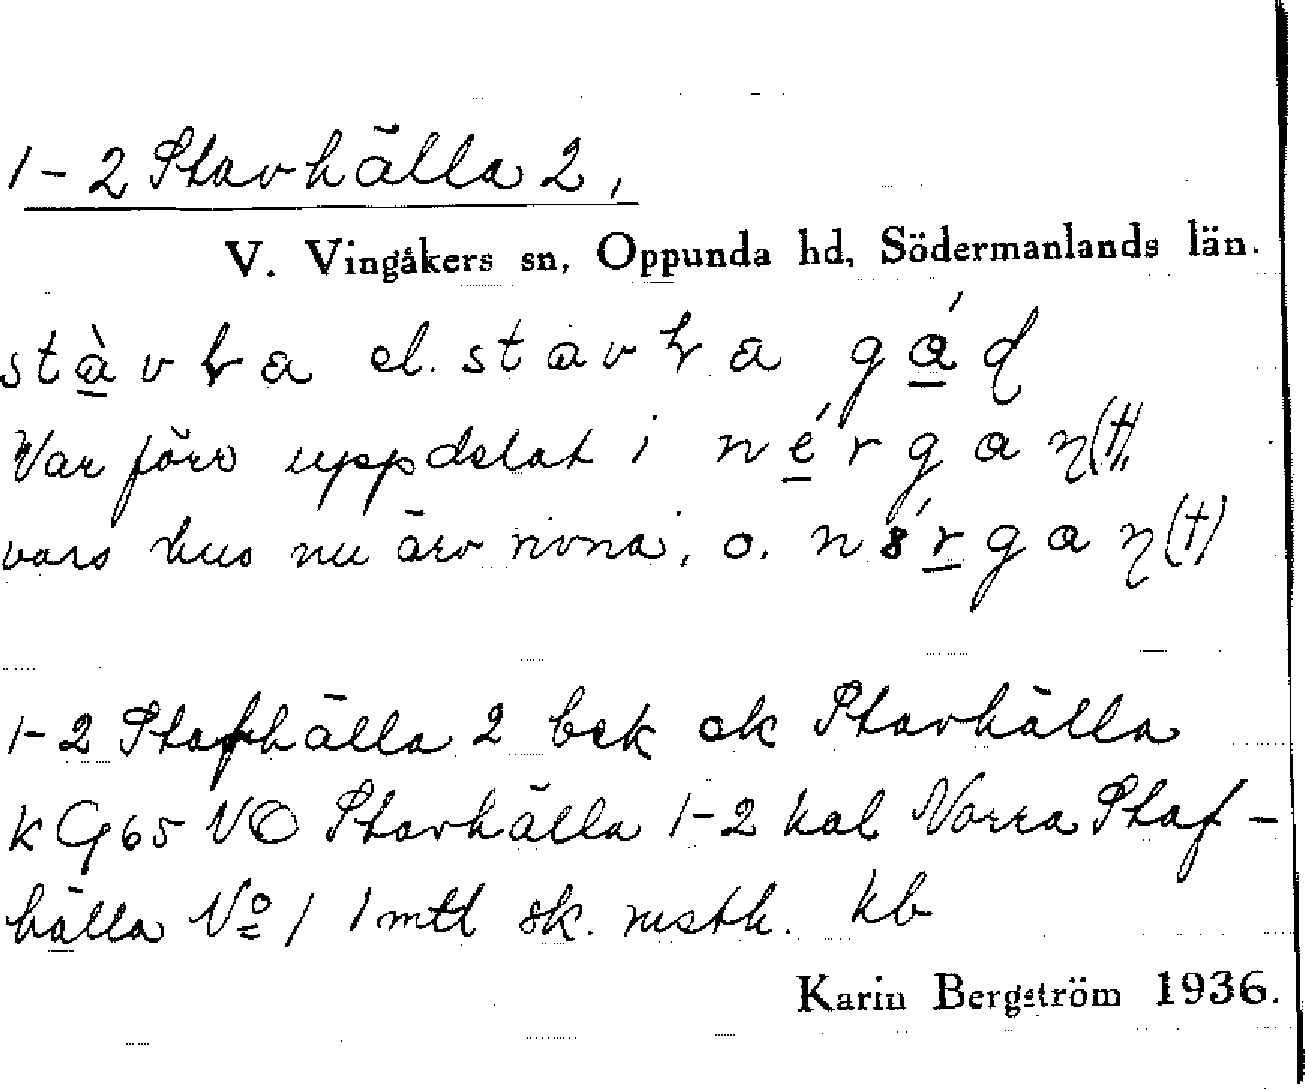 1-2 Stavhälla 2,
V. Vingåkers sn, Oppunda hd, Södermanlands län.
el.
Var förr uppdelat i
vars hus nu äro rivna, o.
1-2 Stafhälla 2 bek ek Stavhälla
k G65 VO Stavhälla 1-2 kal Norra Staf-
hälla No 1 1 mtl sk. rusth. kb
Karin Bergström 1936.